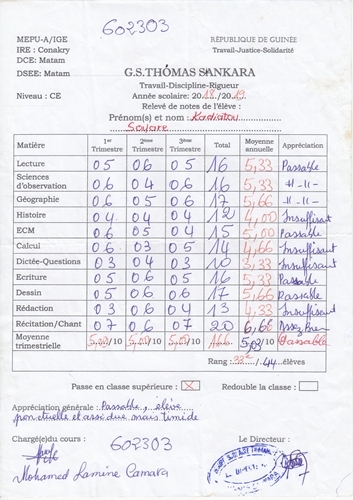 602303
MEPU-A/IGE
RÉPUBLIQUE DE GUINÉE
IRE : Conakry
Travail-Justice-Solidarité
DCE: Matam
DSEE: Matam
G.S.THÓMAS SANKARA
Travail-Discipline-Rigueur
Niveau : CE
Année scolaire: 2018./2019.
Relevé de notes de l'élève :
Prénom(s) et nom : Kadiatou
Soware
Matière 1er Trimestre 2ème Trimestre 3ème Trimestre Total Moyenne annuelle Appréciation
Lecture 05 06 05 16 5,33 Passable
Sciences d'observation 06 04 06 16 5,33 -//-
Géographie 06 05 06 17 5,66 -//-
Histoire 04 04 04 12 4,00 Insuffisant
ECM 06 05 04 15 5,00 Passable
Calcul 06 03 05 14 4,66 Insuffisant
Dictée-Questions 03 04 03 10 3,33 Insuffisant
Ecriture 05 06 05 16 5,33 Passable
Dessin 05 06 06 17 5,66 Passable
Rédaction 03 06 04 13 4,33 Insuffisant
Récitation/Chant 07 06 07 20 6,66 Assez Bien
Moyenne trimestrielle /10 /10 /10 166 5,03/10 Passable
Rang : 33e /.44 élèves
Passe en classe supérieure : X Redouble la classe :
Appréciation générale : Passable, élève
ponctuelle et assidue mais timide
Chargé(e)du cours : 602303 Le Directeur :
Mohamed Lamine Camara